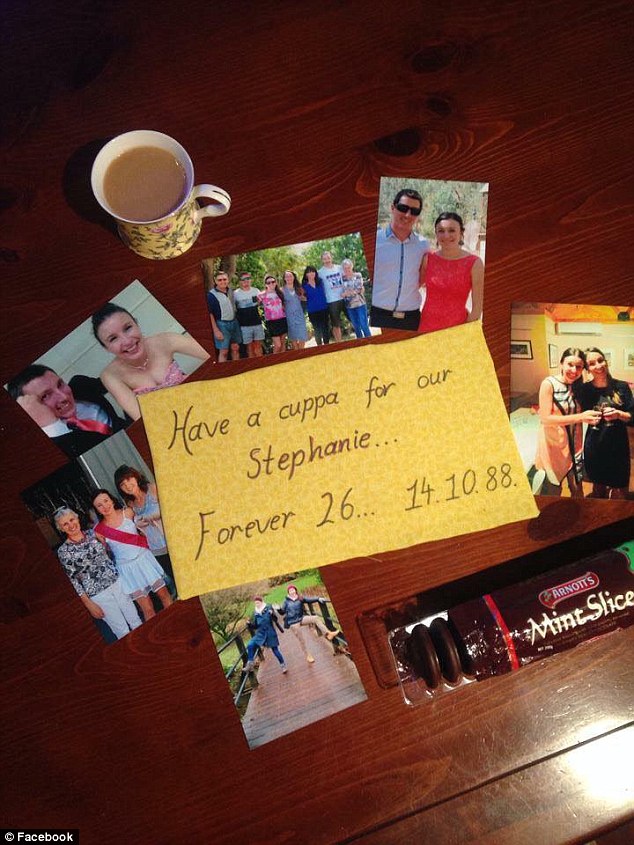 Have a cuppa for our
Stephanie...
Forever 26... 14.10.88.
ARNOTT'S
Mint Slice
© Facebook